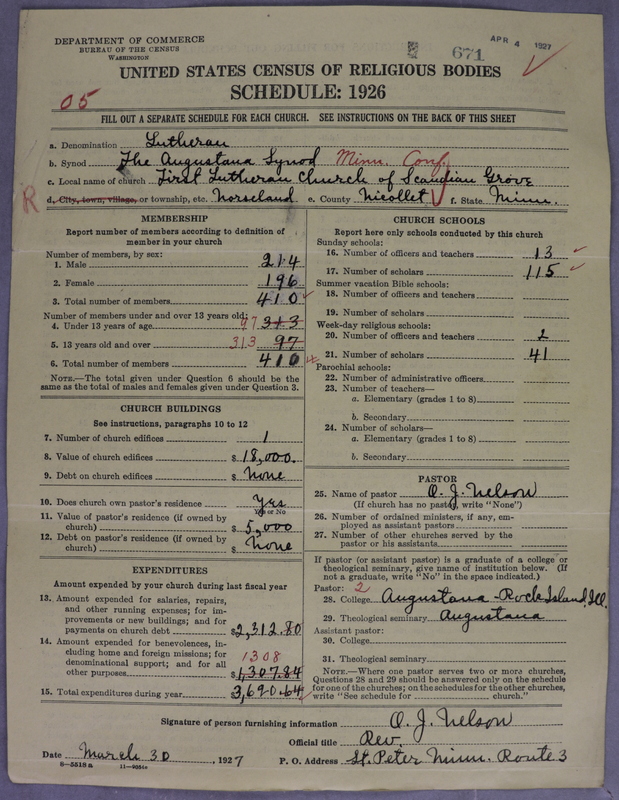 DEPARTMENT OF COMMERCE
BUREAU OF THE CENSUS
WASHINGTON
671
APR 4 1927
UNITED STATES CENSUS OF RELIGIOUS BODIES
SCHEDULE: 1926
05
FILL OUT A SEPARATE SCHEDULE FOR EACH CHURCH. SEE INSTRUCTIONS ON THE BACK OF THIS SHEET
a. Denomination Lutheran
b. Synod The Augustana Synod Minn. Conf.
c. Local name of church First Lutheran Church of Scandian Grove
R
d. City, town, village, or township, etc. Norseland e. County Nicollet f. State Minn.
MEMBERSHIP
Report number of members according to definition of member in your church
Number of members, by sex:
1. Male 214
2. Female 196
3. Total number of members 410
Number of members under and over 13 years old:
4. Under 13 years of age 97 313
5. 13 years old and over 313 97
6. Total number of members 410
NOTE.—The total given under Question 6 should be the
same as the total of males and females given under Question 3.
CHURCH BUILDINGS
See instructions, paragraphs 10 to 12
7. Number of church edifices 1
8. Value of church edifices $18,000.
9. Debt on church edifices $ None
10. Does church own pastor's residence Yes
Yes or No
11. Value of pastor's residence (if owned by
church) $5,000
12. Debt on pastor's residence (if owned by
church) $ None
EXPENDITURES
Amount expended by your church during last fiscal year
13. Amount expended for salaries, repairs,
and other running expenses; for im-
provements or new buildings; and for
payments on church debt $2,312.80
14. Amount expended for benevolences, in-
cluding home and foreign missions; for
denominational support; and for all
1308
other purposes $1,307.84
15. Total expenditures during year $3,690.64
CHURCH SCHOOLS
Report here only schools conducted by this church
Sunday schools:
16. Number of officers and teachers 13
17. Number of scholars 115
Summer vacation Bible schools:
18. Number of officers and teachers
19. Number of scholars
Week-day religious schools:
20. Number of officers and teachers 2
21. Number of scholars 41
Parochial schools:
22. Number of administrative officers
23. Number of teachers—
a. Elementary (grades 1 to 8)
b. Secondary
24. Number of scholars—
a. Elementary (grades 1 to 8)
b. Secondary
PASTOR
25. Name of pastor O. J. Nelson
(If church has no pastor, write "None")
26. Number of ordained ministers, if any, em-
ployed as assistant pastors
27. Number of other churches served by the
pastor or his assistants
If pastor (or assistant pastor) is a graduate of a college or
theological seminary, give name of institution below. (If
not a graduate, write "No" in the space indicated.)
Pastor: 2
28. College Augustana - Rock Island, Ill.
29. Theological seminary Augustana
Assistant pastor:
30. College
31. Theological seminary
NOTE.—Where one pastor serves two or more churches,
Questions 28 and 29 should be answered only on the schedule
for one of the churches; on the schedules for the other churches,
write "See schedule for church."
Signature of person furnishing information O. J. Nelson
Official title Rev.
Date March 30, 1927 P. O. Address St. Peter Minn. Route 3
8—5518 a 11—9054a